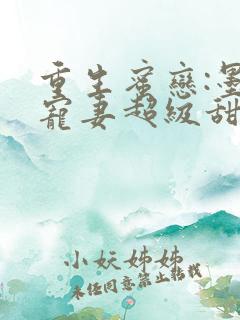 重生蜜戀:墨
寵妻超級甜
小妖姊姊
未經同意禁止轉載